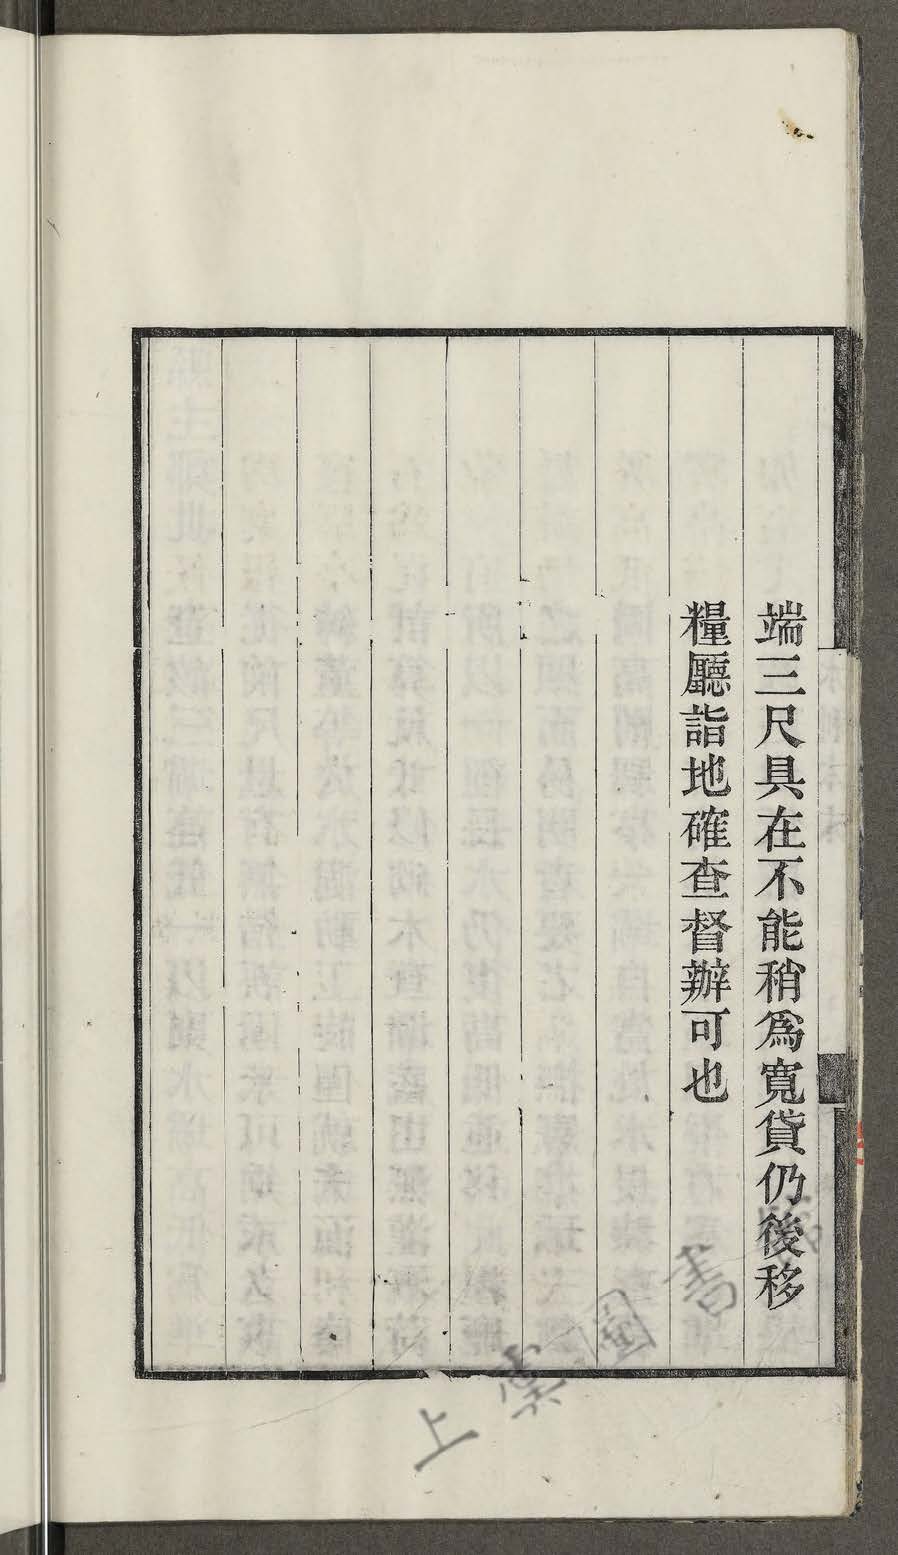 端三尺具在不能稍爲寬貸仍後移
糧廳詣地確查督辦可也
上
圖書